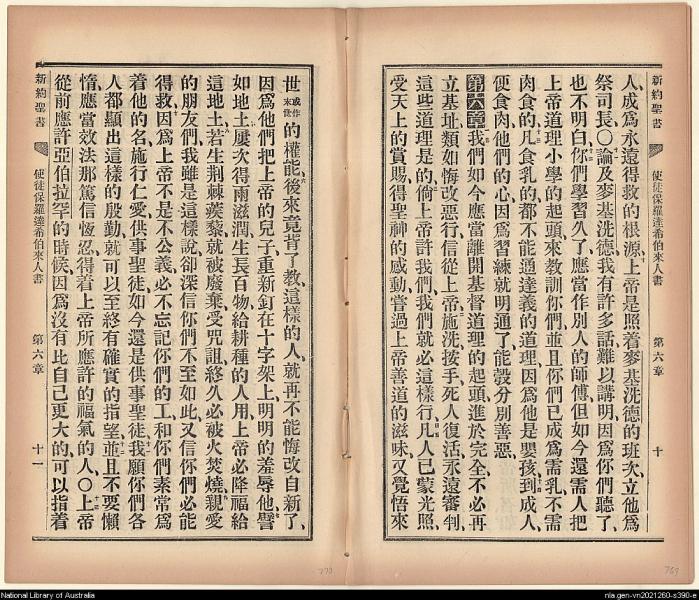 新約聖書
使徒保羅達希伯來人書
第六章
十
人、成爲永遠得救的根源、上帝是照着麥基洗德的班次、立他爲
祭司長、〇論及麥基洗德、我有許多話、難以講明、因爲你們聽了
也不明白、你們學習久了、應當作別人的師傅、但如今還需人把
上帝道理小學的起頭、來敎訓你們、並且你們已成爲需乳不需
肉食的、凡食乳的、都不能通達義的道理、因爲他是嬰孩、到成人、
便食肉、他們的心、因爲習練、就明通了、能彀分別善惡、
第六章 我們如今應當離開基督道理的起頭、進於完全、不必再
立基址、類如悔改惡行、信從上帝、施洗、按手、死人復活、永遠審判、
這些道理是的、倘上帝許我們、我們就必這樣行、凡人已蒙光照
受天上的賞賜、得聖神的感動、嘗過上帝善道的滋味、又覺悟來
世或作末世的權能、後來竟背了敎、這樣的人、就再不能悔改自新了、
因爲他們把上帝的兒子、重新釘在十字架上、明明的羞辱他、譬
如地土、屢次得雨滋潤、生長百物、給耕種的人用、上帝必降福給
這地土、若生荆棘蒺藜、就被廢棄受咒詛、終久必被火焚燒、親愛
的朋友們、我雖是這樣說、卻深信你們不至如此、又信你們必能
得救、因爲上帝不是不公義、必不忘記你們的工、和你們素常爲
着他的名、施行仁愛、供事聖徒、如今還是供事聖徒、我願你們各
人都顯出這樣的殷勤、就可以至終有確實的指望、並且不要懶
惰、應當效法那篤信恆忍、得着上帝所應許的福氣的人、〇上帝
從前應許亞伯拉罕的時候、因爲沒有比自己更大的、可以指着
新約聖書
使徒保羅達希伯來人書
第六章
十一
770
769
National Library of Australia
nla.gen-vn2021260-s390-e